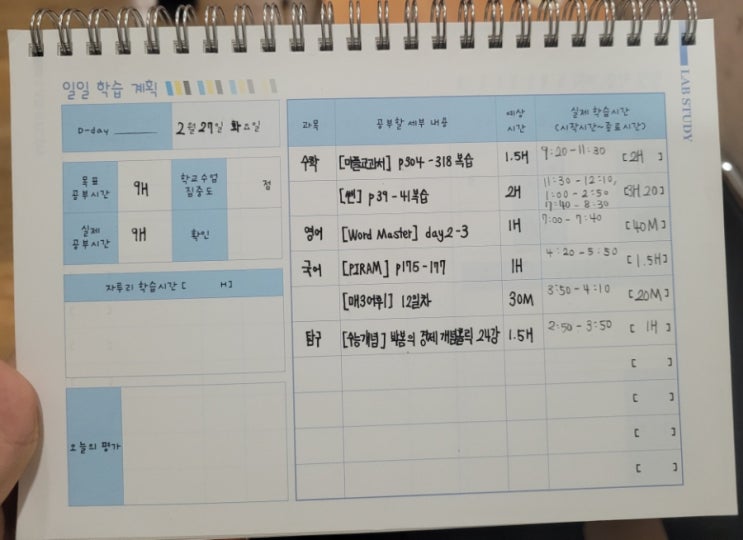 일일 학습 계획
LAB STUDY
D-day
2월 27일 화요일
목표
공부시간
9H
학교수업
집중도
점
실제
공부시간
9H
확인
자투리 학습시간 [ H]
오늘의 평가
과목
공부할 세부 내용
예상
시간
실제 학습시간
(시작시간~종료시간)
수학 [마플교과서] p304-318 복습 1.5H 9:20-11:30 [2H ]
[쎈] p39-41복습 2H
11:30-12:10,
1:00-2:50
7:40-8:30
[3H 20]
영어 [Word Master] day2-3 1H 7:00-7:40 [40M]
국어 [PIRAM] p175-197 1H 4:20-5:50 [1.5H]
[매3어휘] 12일차 30M 3:50-4:10 [20M]
탐구 [수능개념] 박봄의 경제 개념홀릭 24강 1.5H 2:50-3:50 [ 1H ]
[ ]
[ ]
[ ]
[ ]